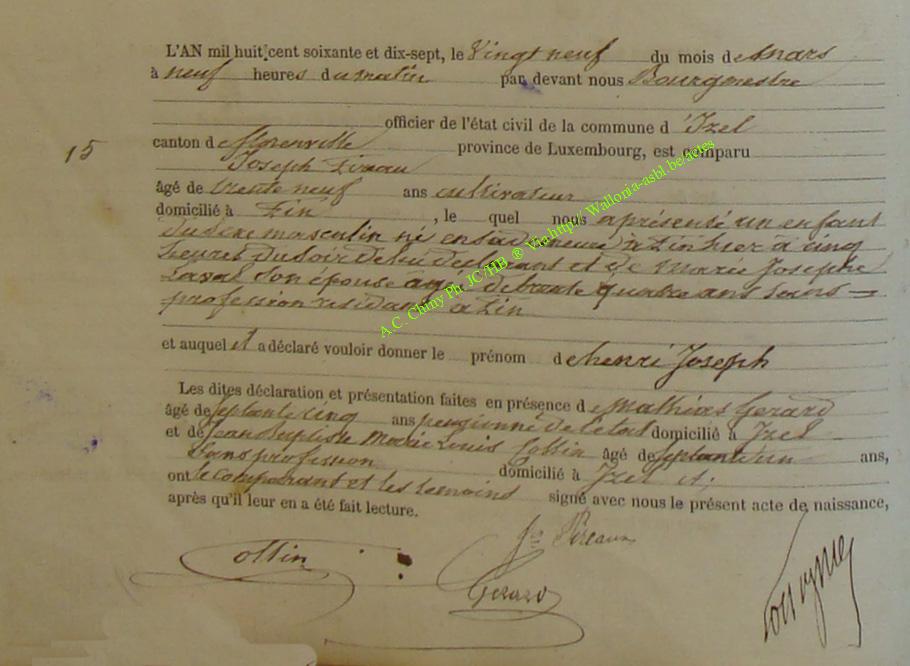 L'AN mil huit cent soixante et dix-sept, le Vingt neuf du mois de Mars
à neuf heures du matin par devant nous Bourgmestre
officier de l'état civil de la commune d'Izel
15
canton de florenville province de Luxembourg, est comparu
Joseph
âgé de trente neuf ans cultivateur
domicilié à , le quel nous a présenté un enfant
du sexe masculin né en sa demeure à hier à cinq
heures du soir de lui déclarant et de Marie Josephe
Laval Son épouse agée de trente quatre ans Sans
profession residante à
et auquel il a déclaré vouloir donner le prénom de henri Joseph
Les dites déclaration et présentation faites en présence de Mathias Gerard
âgé de septante cinq ans pensionné de l'état domicilié à Izel
et de Jean Baptiste Marie Louis Collin âgé de septante un ans,
Sans profession domicilié à Izel et
ont le comparant et les temoins signé avec nous le présent acte de naissance,
après qu'il leur en a été fait lecture.
Collin
Gerard
A.C. Chiny Ph. JC/HB ® Via http// Wallonia-asbl be/actes